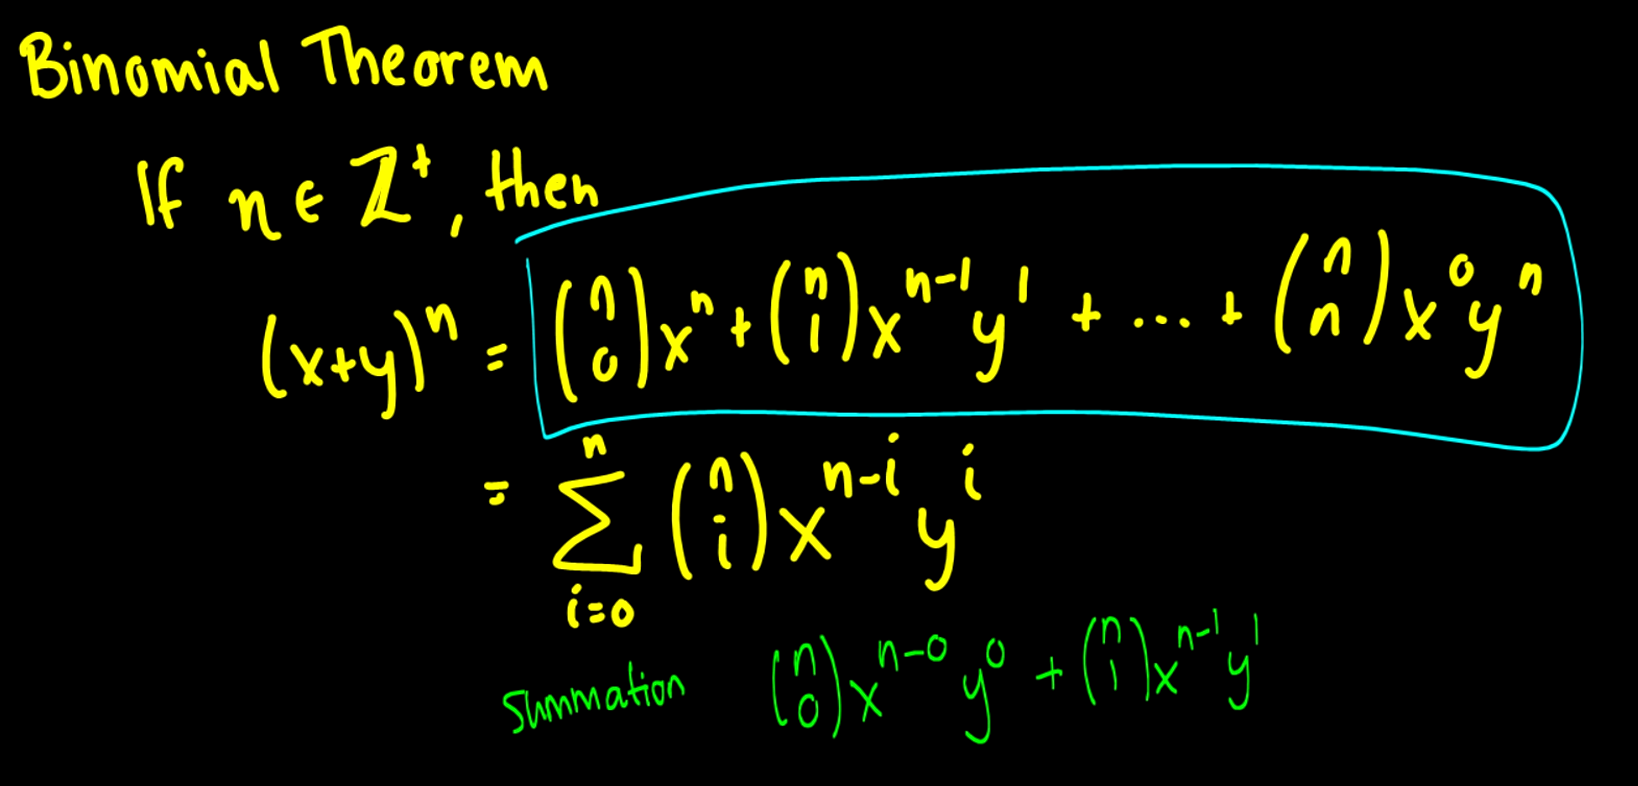 Binomial Theorem
If n ∈ ℤ⁺, then
(x+y)ⁿ = (n 0) xⁿ + (n 1) xⁿ⁻¹ y¹ + ... + (n n) x⁰ yⁿ
= ∑ⁿᵢ₌₀ (n i) xⁿ⁻ⁱ yⁱ
Summation (n 0) xⁿ⁻⁰ y⁰ + (n 1) xⁿ⁻¹ y¹